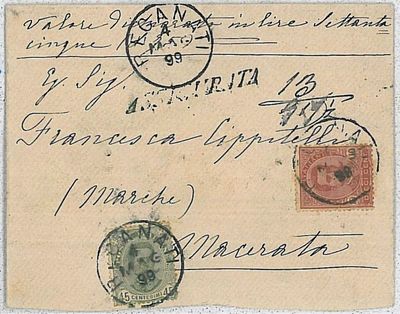 Valore dichiarato in lire settanta
cinque
RECANATI
4
MAG
99
ASSICURATA
Eg. Sig.
13
Francesca Cippitelli
(Marche)
Macerata
RECANATI
99
45 CENTESIMI 45